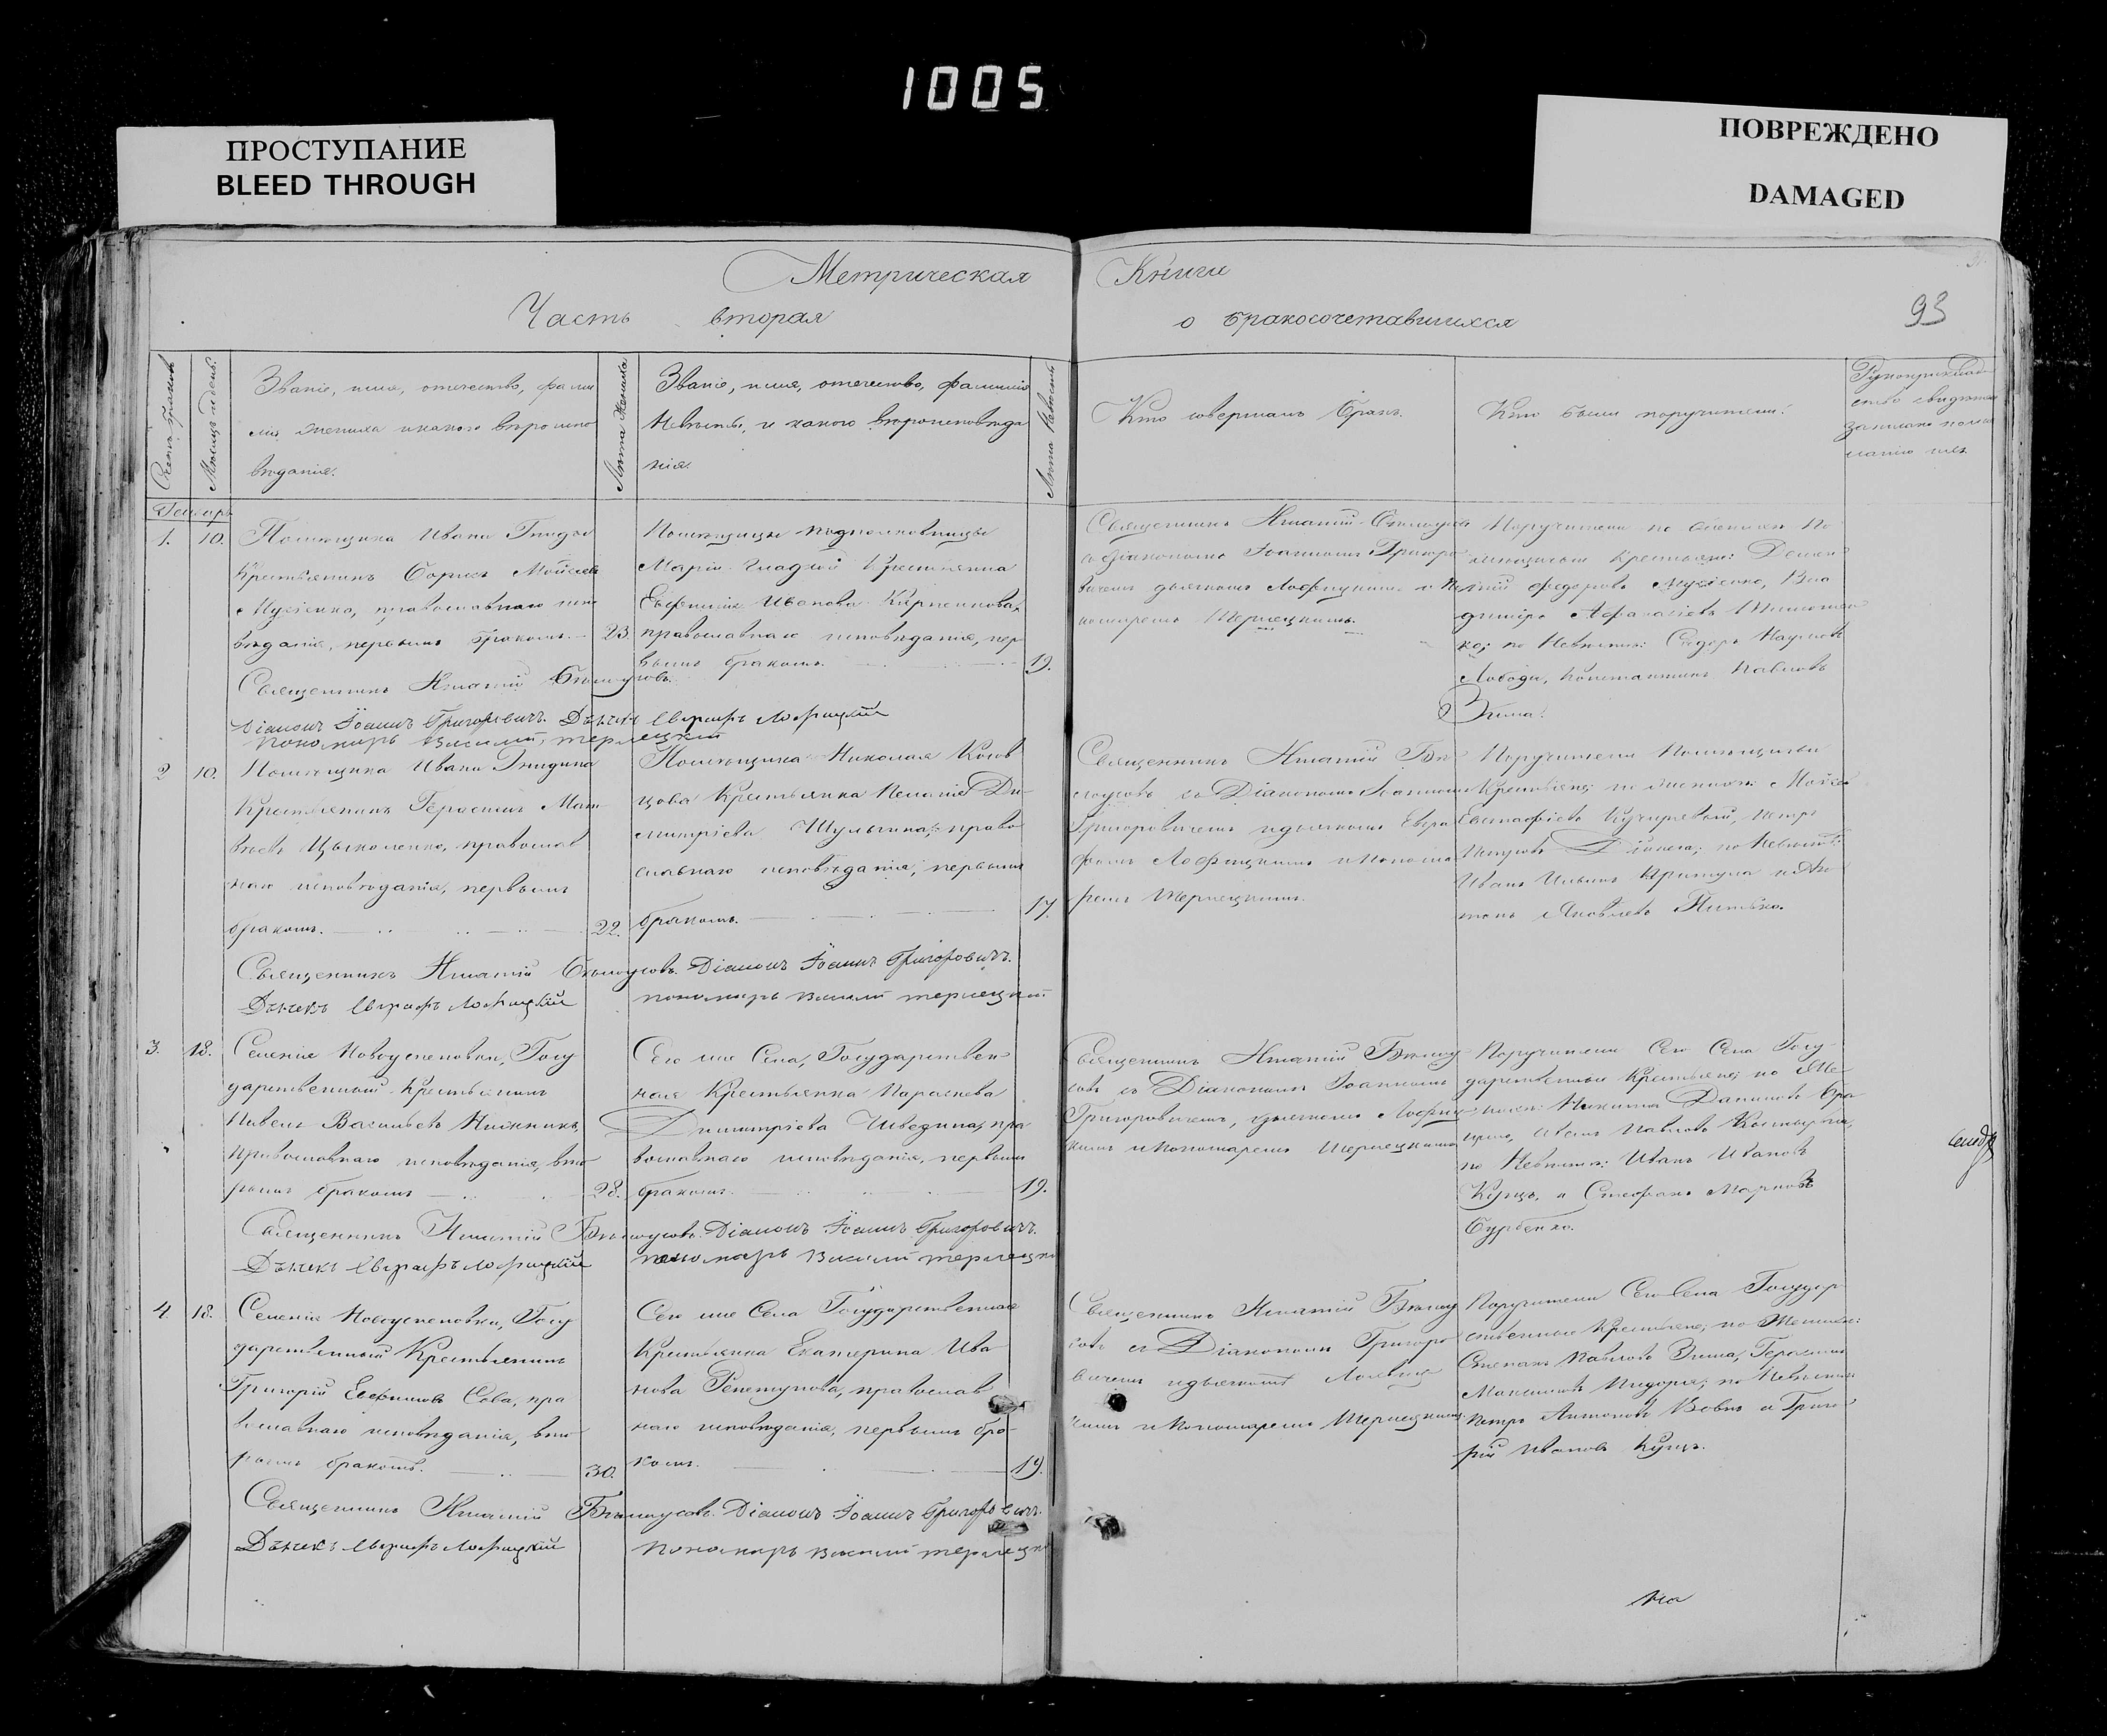 1005
ПРОСТУПАНИЕ
BLEED THROUGH
ПОВРЕЖДЕНО
DAMAGED
Метрическая Книги
93
Часть вторая о бракосочетавшихся
Счетъ браковъ
Мѣсяцъ и день.
Званіе, имя, отечество, фами
лія жениха и какого вѣроиспо
вѣданія.
Лѣта Жениха
Званіе, имя, отечество, фамилія
Невѣсты, и какого вѣроисповѣда
нія.
Лѣта Невѣсты
Кто совершалъ бракъ.
Кто были поручители.
Генварь
1. 10.
Помѣщика Ивана
Крестьянинъ Борисъ Мойсеев
Мусіенко, православнаго испо
вѣданія, первымъ бракомъ. 23.
Помѣщицы подполковницы
Маріи Гладкой Крестьянка
Евфимія Иванова
православнаго исповѣданія, пер
вымъ бракомъ. 19.
Священникъ Игнатій Бѣлоусовъ
съ Діакономъ Іоанномъ Григоро
вичемъ дьячкомъ и По
номаремъ Терлецкимъ.
Поручители по женихѣ По
мѣщичьи крестьяне:
Федоровъ Мусіенко, Вла
диміръ Афанасіевъ
ко; по Невѣстѣ: Сидоръ Наумовъ
Лобода, Константинъ Павловъ
Зима.
Священникъ Игнатій Бѣлоусовъ.
Діаконъ Іоаннъ Григоровичъ. Дьячекъ Евграфъ
пономарь Василий терлецкий
2 10.
Помѣщика Ивана
Крестьянинъ Герасимъ Мат
вѣевъ православ
наго исповѣданія, первымъ
бракомъ. 22.
Помѣщика Николая
Крестьянка Пелагія Ди
митріева Шульгина, право
славнаго исповѣданія, первымъ
бракомъ. 17.
Священникъ Игнатій Бѣ
лоусовъ съ Діакономъ Іоанномъ
Григоровичемъ и дьячкомъ Евгра
фомъ и Понома
ремъ Терлецкимъ.
Поручители Помѣщичьи
Крестьяне; по женихѣ: Мойсей
Евстафіевъ Петръ
по Невѣстѣ:
Иванъ Ильинъ Притула и Ан
тонъ Яковлевъ
Священникъ Игнатій Бѣлоусовъ. Діаконъ Іоаннъ Григоровичъ.
Дьячекъ Евграфъ пономарь Василий терлецкий
3. 18.
Селенія Новоуспеновки, Госу
дарственный Крестьянинъ
Павелъ Васильевъ
Православнаго исповѣданія, вто
рымъ бракомъ 28.
Сего же Села, Государствен
ная Крестьянка Параскева
Димитріева Шведина, пра
вославнаго исповѣданія, первымъ
бракомъ. 19.
Священникъ Игнатій Бѣлоу
совъ съ Діакономъ Іоанномъ
Григоровичемъ, дьячкомъ
кимъ и Пономаремъ Терлецкимъ
Поручители Сего Села Госу
дарственные Крестьяне; по Же
нихѣ: Никита Даниловъ
Павловъ
по Невѣстѣ: Иванъ Ивановъ
Купцъ, и Стефанъ Марковъ
Священникъ Игнатій Бѣлоусовъ. Діаконъ Іоаннъ Григоровичъ.
Дьячекъ Евграфъ пономарь Василий терлецкий
4. 18.
Селенія Новоуспеновки, Госу
дарственный Крестьянинъ
Григорій Евфимовъ Сова, пра
вославнаго исповѣданія, вто
рымъ бракомъ. 30.
Сего же Села Государственная
Крестьянка Екатерина Ива
нова православ
наго исповѣданія, первымъ бра
комъ. 19.
Священникъ Игнатій Бѣлоу
совъ съ Діакономъ Григоро
вичемъ и дьячкомъ
и Пономаремъ Терлецкимъ
Поручители Сего Села Государ
ственные Крестьяне; по Женихѣ:
Степанъ Павловъ Зима, Герасимъ
Максимовъ по Невѣстѣ
Петръ Антоновъ Вовкъ и Григо
рій Ивановъ Купцъ.
Священникъ Игнатій Бѣлоусовъ. Діаконъ Іоаннъ Григоровичъ.
Дьячекъ Евграфъ пономарь Василий терлецкий